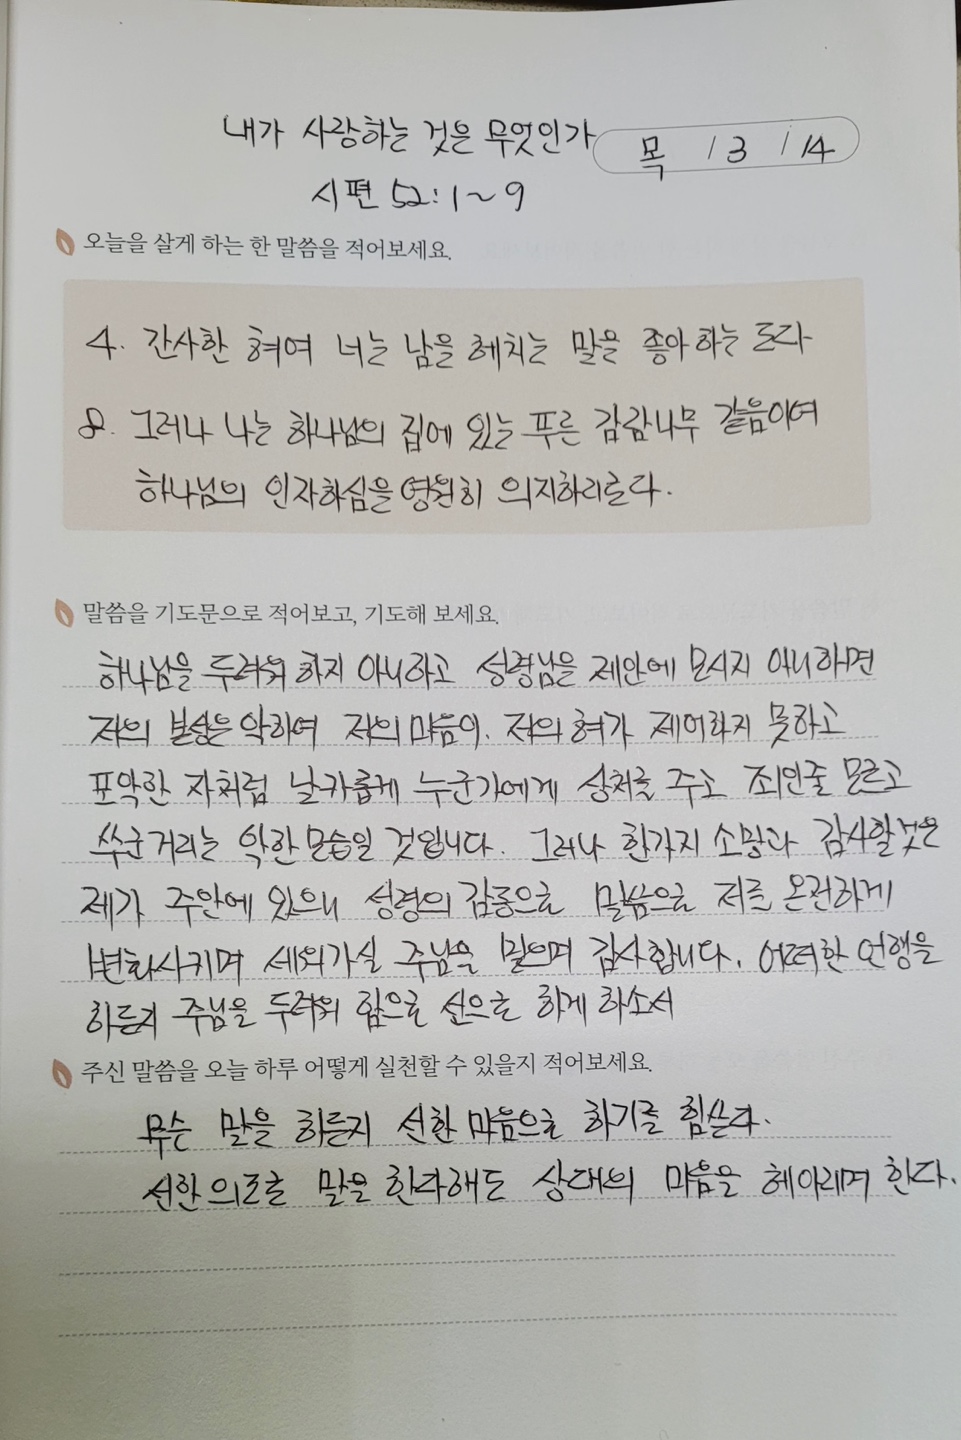 내가 사랑하는 것은 무엇인가
목 / 3 / 14
시편 52:1~9
오늘을 살게 하는 한 말씀을 적어보세요.
4. 간사한 혀여 너는 남을 헤치는 말을 좋아하는 도다
8. 그러나 나는 하나님의 집에 있는 푸른 감람나무 같음이여
하나님의 인자하심을 영원히 의지하리로다.
말씀을 기도문으로 적어보고, 기도해 보세요.
하나님을 두려워 하지 아니하고 성령님을 제안에 모시지 아니하면
저의 본성은 악하여 저의 마음이. 저의 혀가 제어하지 못하고
포악한 자처럼 날카롭게 누군가에게 상처를 주고 죄인줄 모르고
쑤군거리는 악한 모습일 것입니다. 그러나 한가지 소망과 감사할것은
제가 주안에 있으니 성령의 감동으로 말씀으로 저를 온전하게
변화시키며 세워가실 주님을 믿으며 감사합니다. 어떠한 언행을
하든지 주님을 두려워 함으로 선으로 하게 하소서
주신 말씀을 오늘 하루 어떻게 실천할 수 있을지 적어보세요.
무슨 말을 하든지 선한 마음으로 하기를 힘쓴다.
선한 의도로 말을 한다해도 상대의 마음을 헤아리며 한다.